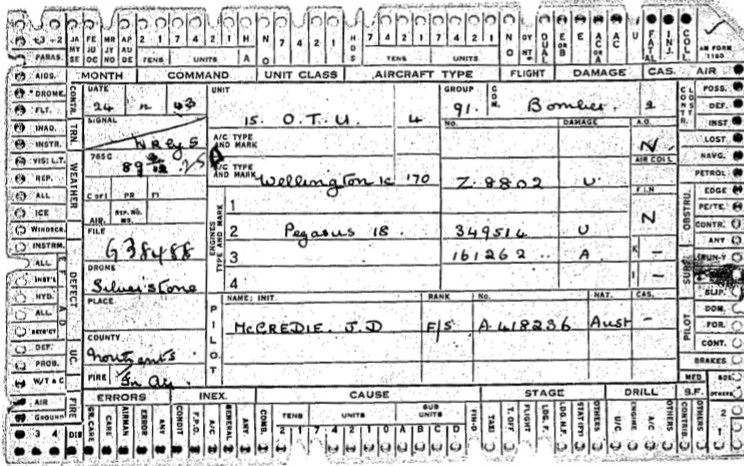 +3 +2 JA MY SE FE JU OC MR JY NO AP AU DE 2 1 7 4 2 1 H A N O 7 4 2 1 H D S 7 4 2 1 7 4 2 1 N O DUAL E OR B E AC OR A AC U FATAL INJ. COLL. AM FORM 1180
PARAS. TENS UNITS TENS UNITS
AIDS. MONTH COMMAND UNIT CLASS AIRCRAFT TYPE FLIGHT DAMAGE CAS. AIR
DROME. CONTR. DATE UNIT GROUP COM. CONTR. CL OST POSS.
FLT. 24 43 15. O.T.U. 4 91. Bomber. 2 DEF.
INAD. TRN. SIGNAL A/C TYPE AND MARK No. DAMAGE A.D. INST
INSTR. N LOST
VIS: L.T. WEATHER 765 C A/C TYPE AND MARK AIR COLL NAVG.
REP. 89 Wellington 1c 170 Z.8802 U. PETROL
ALL C OF I PR FI 1 F.I.N EDGE
ICE AIR. REP. NO. ENGINES TYPE AND MARK N OBSTRU. PE/TE.
WINDSCR. FILE 2 Pegasus 18. 349514 U CONTR.
INSTRM. G38488 3 161262 A K - ANY
ALL DEFECT DROME 4 I - SURF. RUN-Y
INST'S Silverstone
HYD. PLACE PILOT NAME: INIT. RANK No. NAT. CAS. SLIP.
ALL McCREDIE. J.D F/S A418236 Aust - PILOT DOM.
RETR'CT COUNTY FOR.
DEF. UC Northants CONT.
PROB. FIRE In Air BRAKES
W/T & C MED
AIR FIRE ERRORS INEX. CAUSE STAGE DRILL S.F. OTHERS
GROUND GR. CASE AIR CASE AIRMAN ERROR ANY CONDIT F.P.O. A/C GENERAL ANY COMB. TENS UNITS SUB UNITS FIN-G TAXI T. OFF FLIGHT LOG. F. LDG. N.F. STAT(F) OTHERS U/C ENGINE A/C OTHERS CONTRIB. OTHERS
3 4 DIS 2 1 7 4 2 1 0 A B C D 2 1